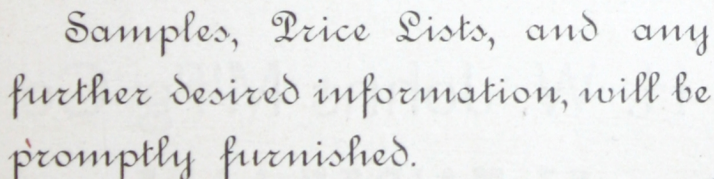 Samples, Price Lists, and any
further desired information, will be
promptly furnished.